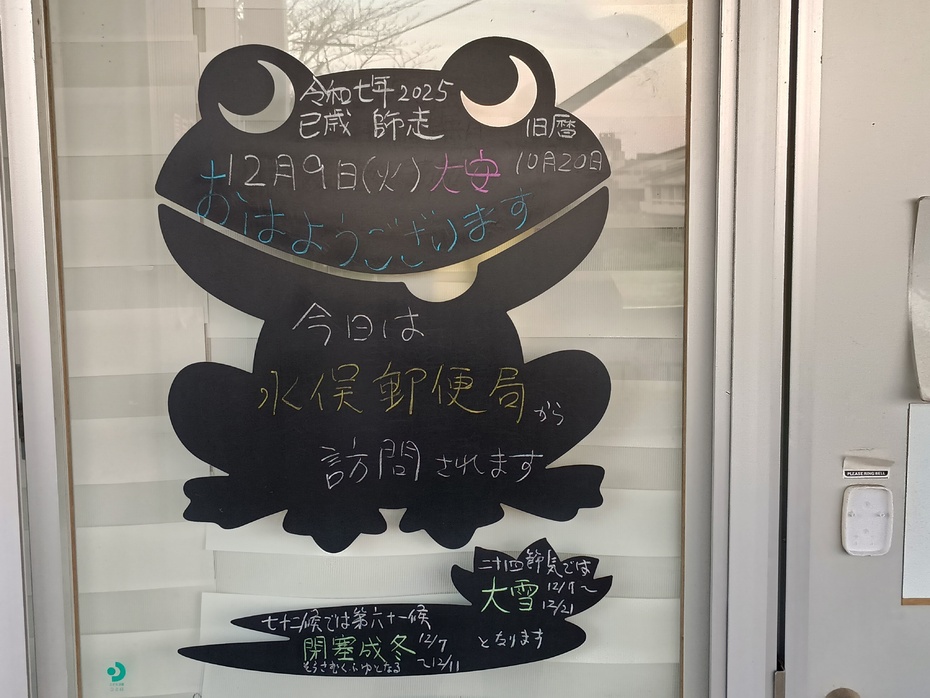 令和七年 2025
巳歳 師走
旧暦
10月20日
12月9日(火)大安
おはようございます
今日は
水俣郵便局から
訪問されます
二十四節気では
大雪 12/7〜
12/21
七十二候では第六十一候
閉塞成冬 12/7
〜12/11
そらさむくふゆとなる
となります
PLEASE RING BELL